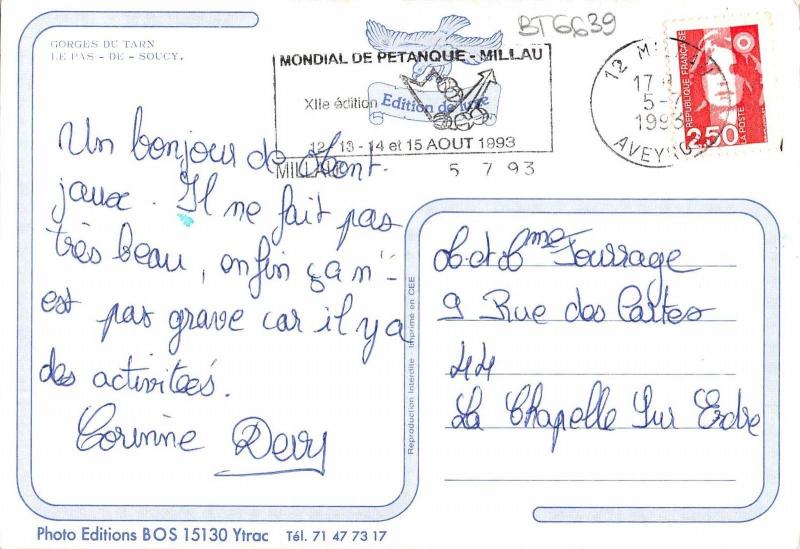 GORGES DU TARN
LE PAS - DE - SOUCY.
BT6639
MONDIAL DE PETANQUE - MILLAU
XIIe édition
Edition de luxe
12 - 13 - 14 et 15 AOUT 1993
MILLAU 5 7 93
12 MILLAU
17
5-7
1993
AVEYRON
REPUBLIQUE FRANÇAISE
2,50
LA POSTE
Un bonjour de Mont-
jaux. Il ne fait pas
très beau, enfin ça n'-
est pas grave car il y a
des activitées.
Corinne Devy
M et Mme Tourrage
9 Rue des Cartes
44
La Chapelle Sur Erdre
Reproduction Interdite - Imprimé en CEE
Photo Editions BOS 15130 Ytrac Tél. 71 47 73 17